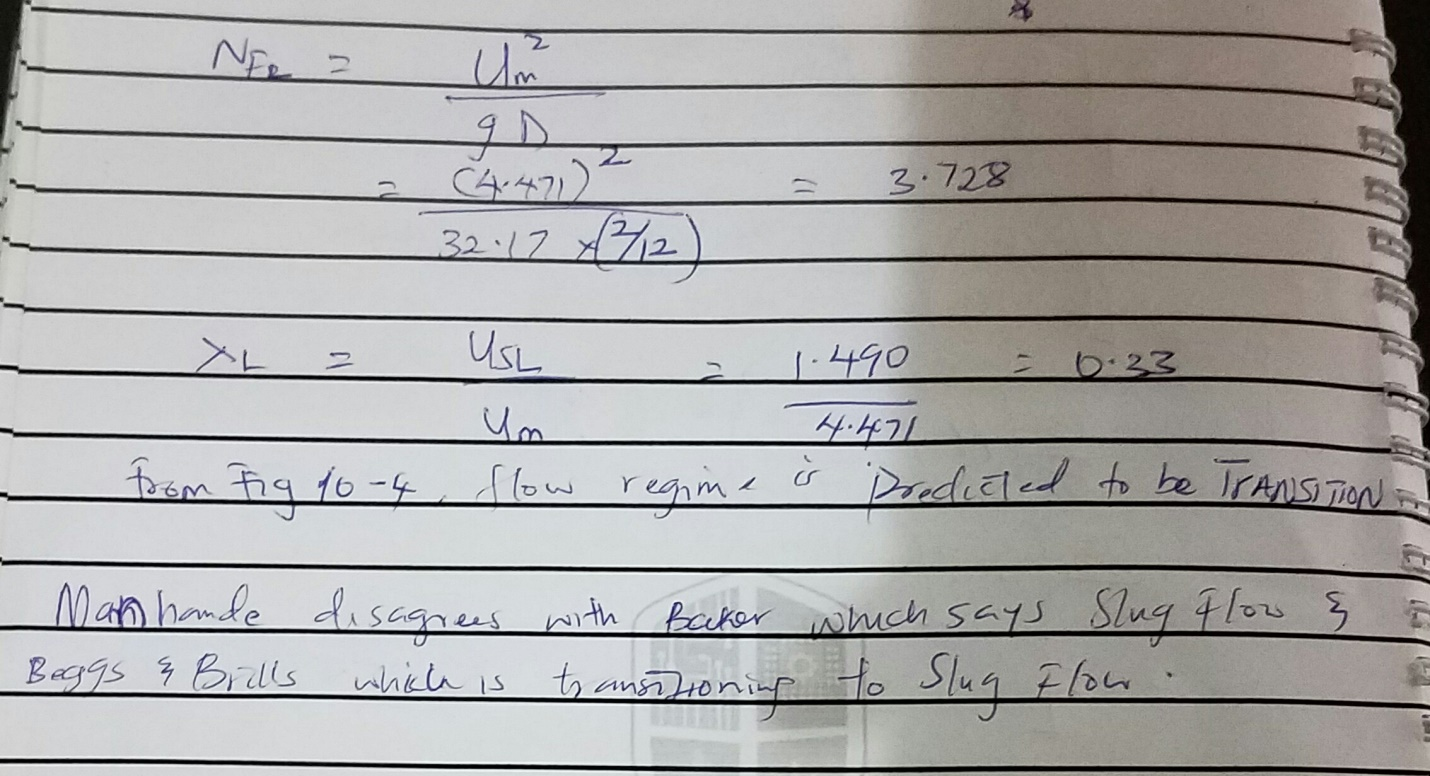 N_FR = Um²
gD
= (4.471)² = 3.728
32.17 x(2/12)
λL = USL = 1.490 = 0.33
Um 4.471
from Fig 10-4, flow regime is Predicted to be TRANSITION
Manhande disagrees with Baker which says Slug Flow &
Beggs & Brills which is transitioning to Slug Flow.